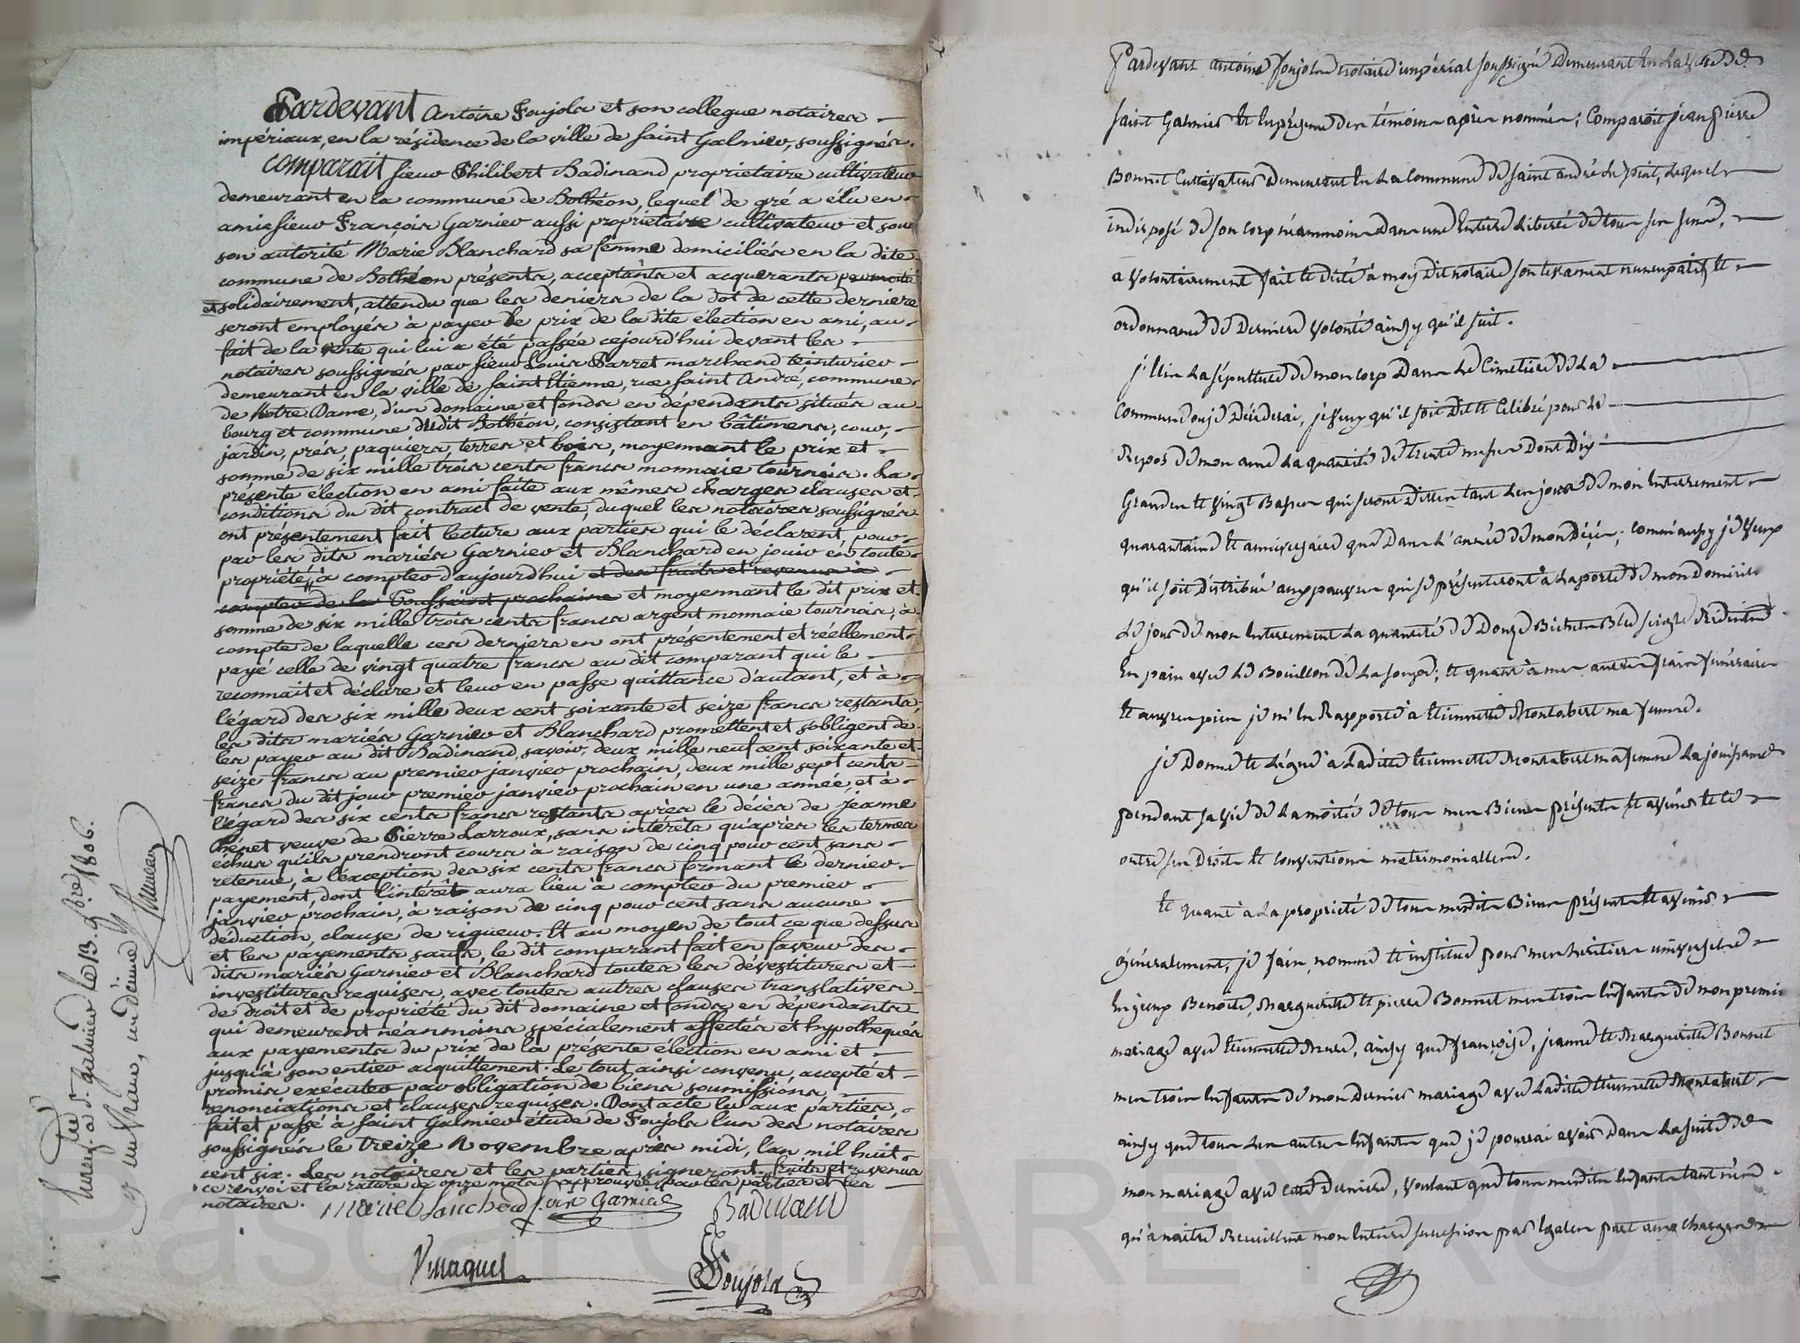 Pardevant Antoine Foujols et son collegue notaires
impériaux, en la résidence de la ville de Saint Galmier, soussignés.
Comparait sieur Philibert Badinand propriétaire cultivateur
demeurant en la commune de Bothéon, lequel de gré a élu en
ami sieur François Garnier aussi propriétaire cultivateur et sous
son autorité Marie Blanchard sa femme domiciliés en la dite
commune de Bothéon présents, acceptants et acquerants par moitié
et solidairement, attendu que les deniers de la dot de cette derniere
seront employés à payer le prix de la dite élection en ami, au
fait de la vente qui lui a été passée cejourd'hui devant les
notaires soussignés par sieur Louis Barret marchand teinturier
demeurant en la ville de Saint Etienne, rue Saint André, commune
de Notre Dame, d'un domaine et fonds en dépendants situés au
bourg et commune dudit Bothéon, consistant en bâtimens, cour,
jardin, prés, paquiers, terres et bois, moyennant le prix et
somme de six mille trois cents francs monnaie tournois. La
présente élection en ami faite aux mêmes charges clauses et
conditions du dit contract de vente, duquel les notaires soussignés
ont présentement fait lecture aux parties qui le déclarent, pour
par les dits mariés Garnier et Blanchard en jouir en toute
propriété, à compter d'aujourd'hui et des fruits et revenus à
compter de la Toussaint prochaine et moyennant le dit prix et
somme de six mille trois cents francs argent monnaie tournois, à
compte de laquelle ces derniers en ont présentement et réellement
payé celle de vingt quatre francs au dit comparant qui le
reconnait et déclare et leur en passe quittance d'autant, et à
l'égard des six mille deux cent soixante et seize francs restants
les dits mariés Garnier et Blanchard promettent et s'obligent de
les payer au dit Badinand, savoir, deux mille neuf cent soixante et
seize francs au premier janvier prochain, deux mille sept cents
francs du dit jour premier janvier prochain en une année, et à
l'égard des six cents francs restants après le décès de Jeanne
veuve de Pierre Larroux, sans intérêts qu'après les termes
échus qu'ils prendront cours à raison de cinq pour cent sans
retenue, à l'exception des six cents francs formant le dernier
payement, dont l'intérêt aura lieu à compter du premier
janvier prochain, à raison de cinq pour cent sans aucune
déduction, clause de rigueur. Et au moyen de tout ce que dessus
et les payements saufs, le dit comparant fait en faveur des
dits mariés Garnier et Blanchard toutes les dévestitures et
investitures requises, avec toutes autres clauses translatives
de droit et de propriété du dit domaine et fonds en dépendants
qui demeurent néanmoins spécialement affectés et hypothequés
aux payements du prix de la présente élection en ami et
jusqu'à son entier acquittement. Le tout ainsi convenu, accepté et
promis exécuter par obligation de biens soumissions,
renonciations et clauses requises. Dont acte lu aux parties,
fait et passé à Saint Galmier étude de Foujols l'un des notaires
soussignés le treize Novembre après midi, l'an mil huit
cent six. Les notaires et les parties signeront. fruits et revenus
ce renvoi et la rature de onze mots approuvés par les parties et les
notaires.
Marie Blanchard Garnier Badinand
Foujols
à St. Galmier le 13. 9bre 1806.
Pardevant antoine foujols notaire impérial soussigné demeurant en la ville de
saint Galmier et en présence des témoins après nommés; Comparoit jean pierre
Bonnet Cultivateur demeurant en la Commune de saint andré le puit, lequel
indisposé de son corp néammoins dans une entiere liberté de tous ses sens,
a volontairement fait et dicté à moy dit notaire son testament nuncupatif et
ordonnance de derniere volonté ainsy qu'il suit.
j'élis la sépulture de mon corp dans le Cimetiere de la
Commune ou je décéderai, je veux qu'il soit dit et célébré pour le
Repos de mon ame la quantité de trente messes dont dix
Grandes et vingt Basses qui seront dittes tant les jours de mon enterrement
quarantaine et anniversaire que dans l'année de mon décès; comme aussy je veux
qu'il soit distribué aux pauvres qui se présenteront à la porte de mon domicile
le jour de mon enterrement la quantité de douze Bichets Bled seigle Réduits
en pain avec le Bouillon de la soupe; et quant à mes autres frais funéraires
et œuvres pies je m'en Rapporte à etiennette Montabert ma femme.
je donne et légue à laditte etiennette Montabert ma femme la jouissance
pendant sa vie de la moitié de tous mes Biens présents et avenirs et ce
outre ses droits et conventions matrimonialles.
et quant à la propriété de tous mesdits Biens présents et avenirs
généralement, je fais, nomme et institue pour mes héritiers universels
Benoite, Margueritte et pierre Bonnet mes trois enfants de mon premier
mariage avec etiennette, ainsy que françoise, jeanne et Marguerite Bonnet
mes trois enfants de mon dernier mariage avec laditte etiennette Montabert
ainsy que tous les autres enfants que je pourrai avoir dans la suite de
mon mariage avec cette derniere, voulant que tous mesdits enfants tant nés
qu'à naitre Recueillent mon entiere succession par égales part aux charges
Pascal CHAREYRON